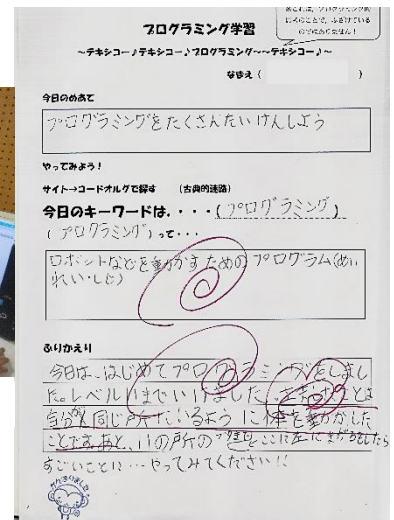 プログラミング学習
～テキシコー♪テキシコー♪プログラミング～～テキシコー♪～
なまえ（　　　　　）
今日のめあて
プログラミングをたくさんたいけんしよう
やってみよう！
サイト→コードオルグで探す　（古典的迷路）
今日のキーワードは．．．．（プログラミング）
（プログラミング）って・・・
ロボットなどを動かすためのプログラム（めい
れい・しじ）
ふりかえり
今日は、はじめてプログラミングをしまし
た。レベル11まで いけました。
自分が同じ所にいるように体を動かした
ことです。あと、11の所の ここに左にまがるをしたら
すごいことに…やってみてください!!